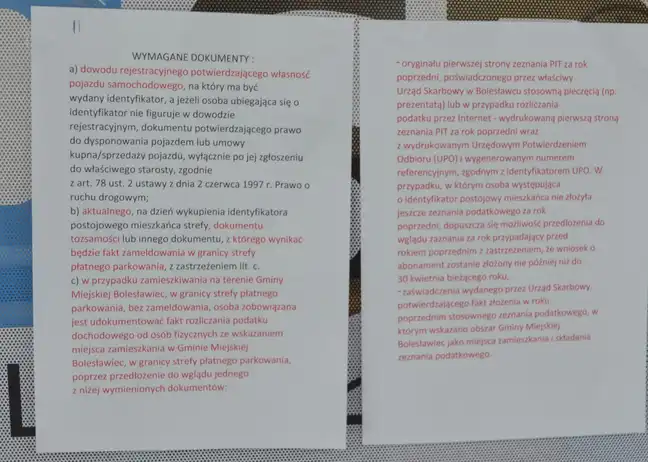 WYMAGANE DOKUMENTY :
a) dowodu rejestracyjnego potwierdzającego własność
pojazdu samochodowego, na który ma być
wydany identyfikator, a jeżeli osoba ubiegająca się o
identyfikator nie figuruje w dowodzie
rejestracyjnym, dokumentu potwierdzającego prawo
do dysponowania pojazdem lub umowy
kupna/sprzedaży pojazdu, wyłącznie po jej zgłoszeniu
do właściwego starosty, zgodnie
z art. 78 ust. 2 ustawy z dnia 2 czerwca 1997 r. Prawo o
ruchu drogowym;
b) aktualnego, na dzień wykupienia identyfikatora
postojowego mieszkańca strefy, dokumentu
tożsamości lub innego dokumentu, z którego wynikać
będzie fakt zameldowania w granicy strefy
płatnego parkowania, z zastrzeżeniem lit. c.
c) w przypadku zamieszkiwania na terenie Gminy
Miejskiej Bolesławiec, w granicy strefy płatnego
parkowania, bez zameldowania, osoba zobowiązana
jest udokumentować fakt rozliczania podatku
dochodowego od osób fizycznych ze wskazaniem
miejsca zamieszkania w Gminie Miejskiej
Bolesławiec, w granicy strefy płatnego parkowania,
poprzez przedłożenie do wglądu jednego
z niżej wymienionych dokumentów:
- oryginału pierwszej strony zeznania PIT za rok
poprzedni, poświadczonego przez właściwy
Urząd Skarbowy w Bolesławcu stosowną pieczęcią (np.
prezentatą) lub w przypadku rozliczania
podatku przez Internet - wydrukowaną pierwszą stroną
zeznania PIT za rok poprzedni wraz
z wydrukowanym Urzędowym Potwierdzeniem
Odbioru (UPO) i wygenerowanym numerem
referencyjnym, zgodnym z identyfikatorem UPO. W
przypadku, w którym osoba występująca
o identyfikator postojowy mieszkańca nie złożyła
jeszcze zeznania podatkowego za rok
poprzedni, dopuszcza się możliwość przedłożenia do
wglądu zaznania za rok przypadający przed
rokiem poprzednim z zastrzeżeniem, że wniosek o
abonament zostanie złożony nie później niż do
30 kwietnia bieżącego roku,
- zaświadczenia wydanego przez Urząd Skarbowy
potwierdzającego fakt złożenia w roku
poprzednim stosownego zeznania podatkowego, w
którym wskazano obszar Gminy Miejskiej
Bolesławiec jako miejsca zamieszkania i składania
zeznania podatkowego.